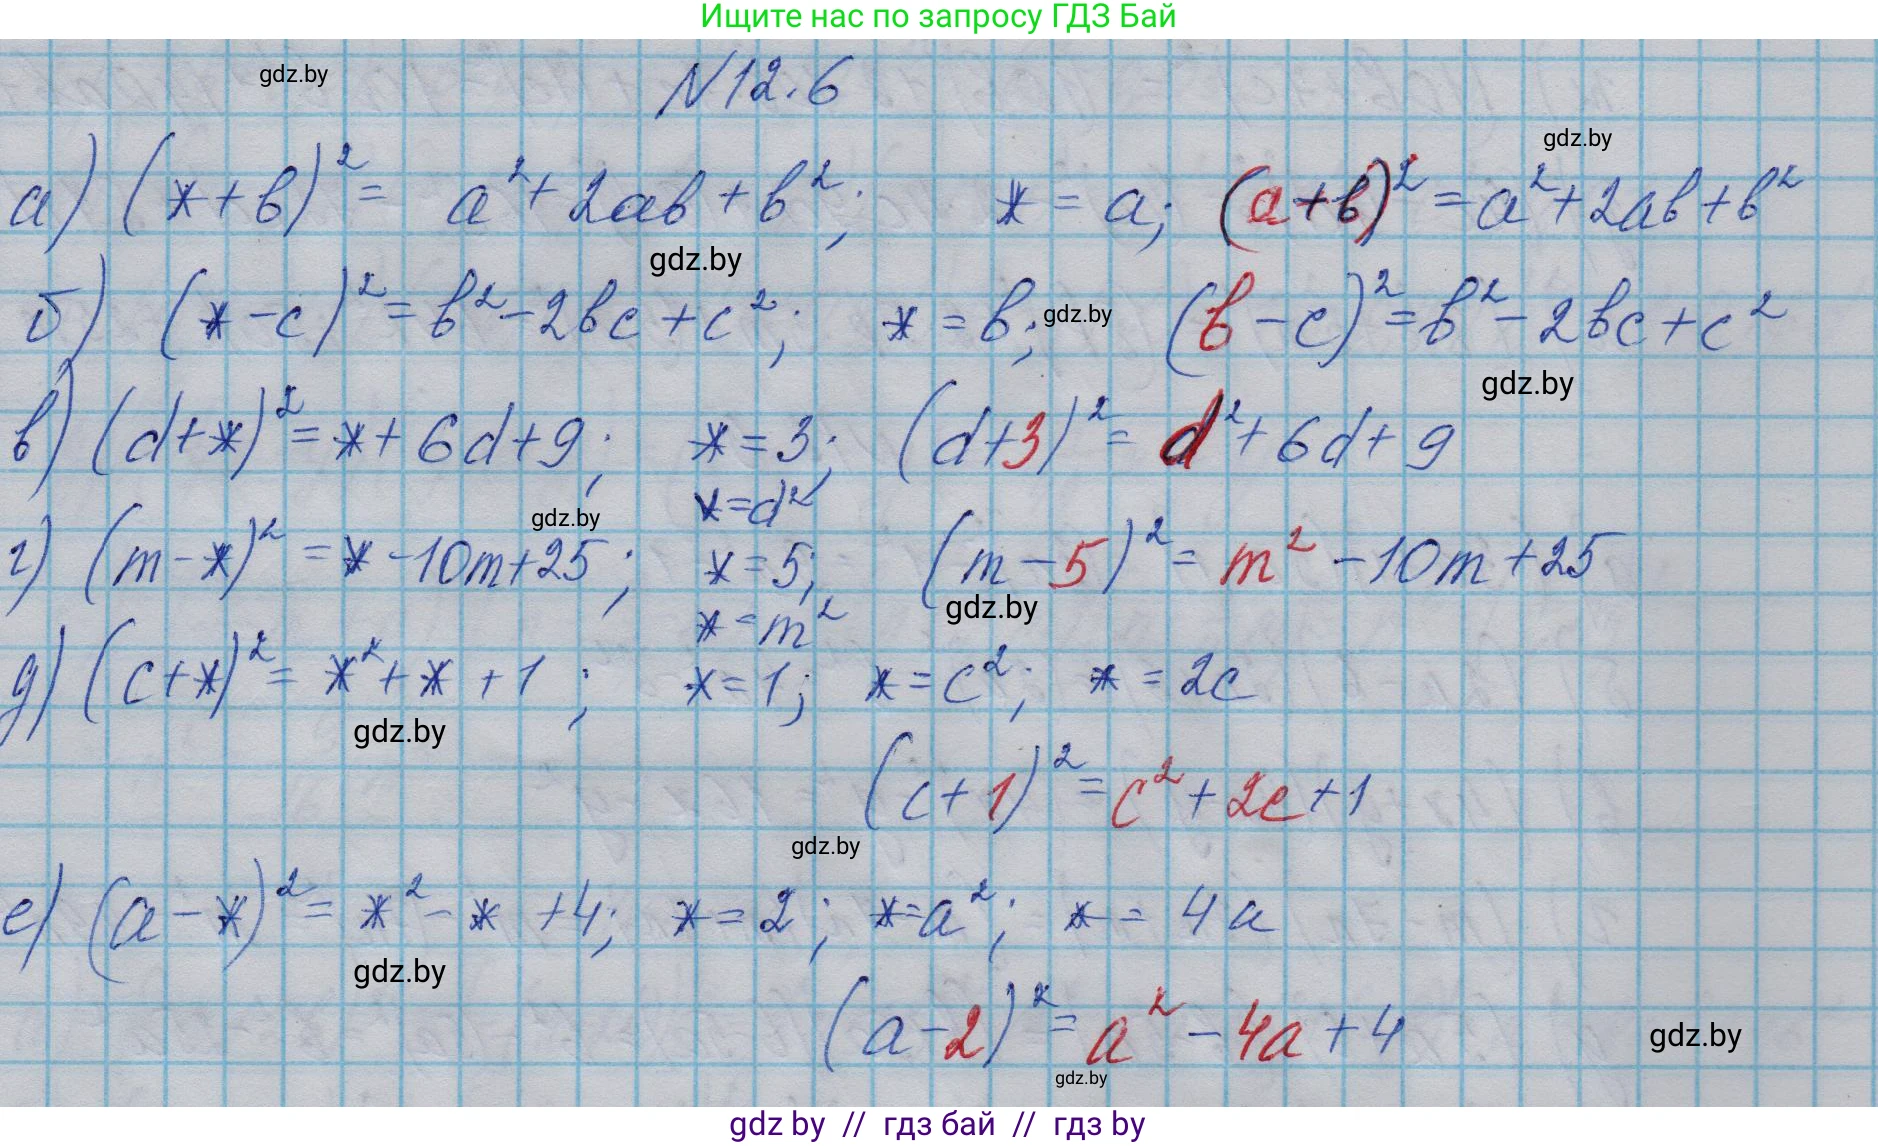 Ищите нас по запросу ГДЗ Бай
gdz.by
N12.6
gdz.by
а) (*+b)² = a²+2ab+b²; * = a; (a+b)² = a²+2ab+b²
gdz.by
б) (*-c)² = b²-2bc+c²; * = b; gdz.by (b-c)² = b²-2bc+c²
gdz.by
в) (d+*)² = *+6d+9; * = 3; (d+3)² = d²+6d+9
* = d²
gdz.by
г) (m-*)² = *-10m+25; * = 5; (m-5)² = m²-10m+25
gdz.by
* = m²
д) (c+*)² = *²+*+1; * = 1; * = c²; * = 2c
gdz.by
(c+1)² = c²+2c+1
gdz.by
е) (a-*)² = *²-*+4; * = 2; * = a²; * = 4a
gdz.by
(a-2)² = a²-4a+4
gdz.by
gdz.by
gdz by // гдз бай // гдз by